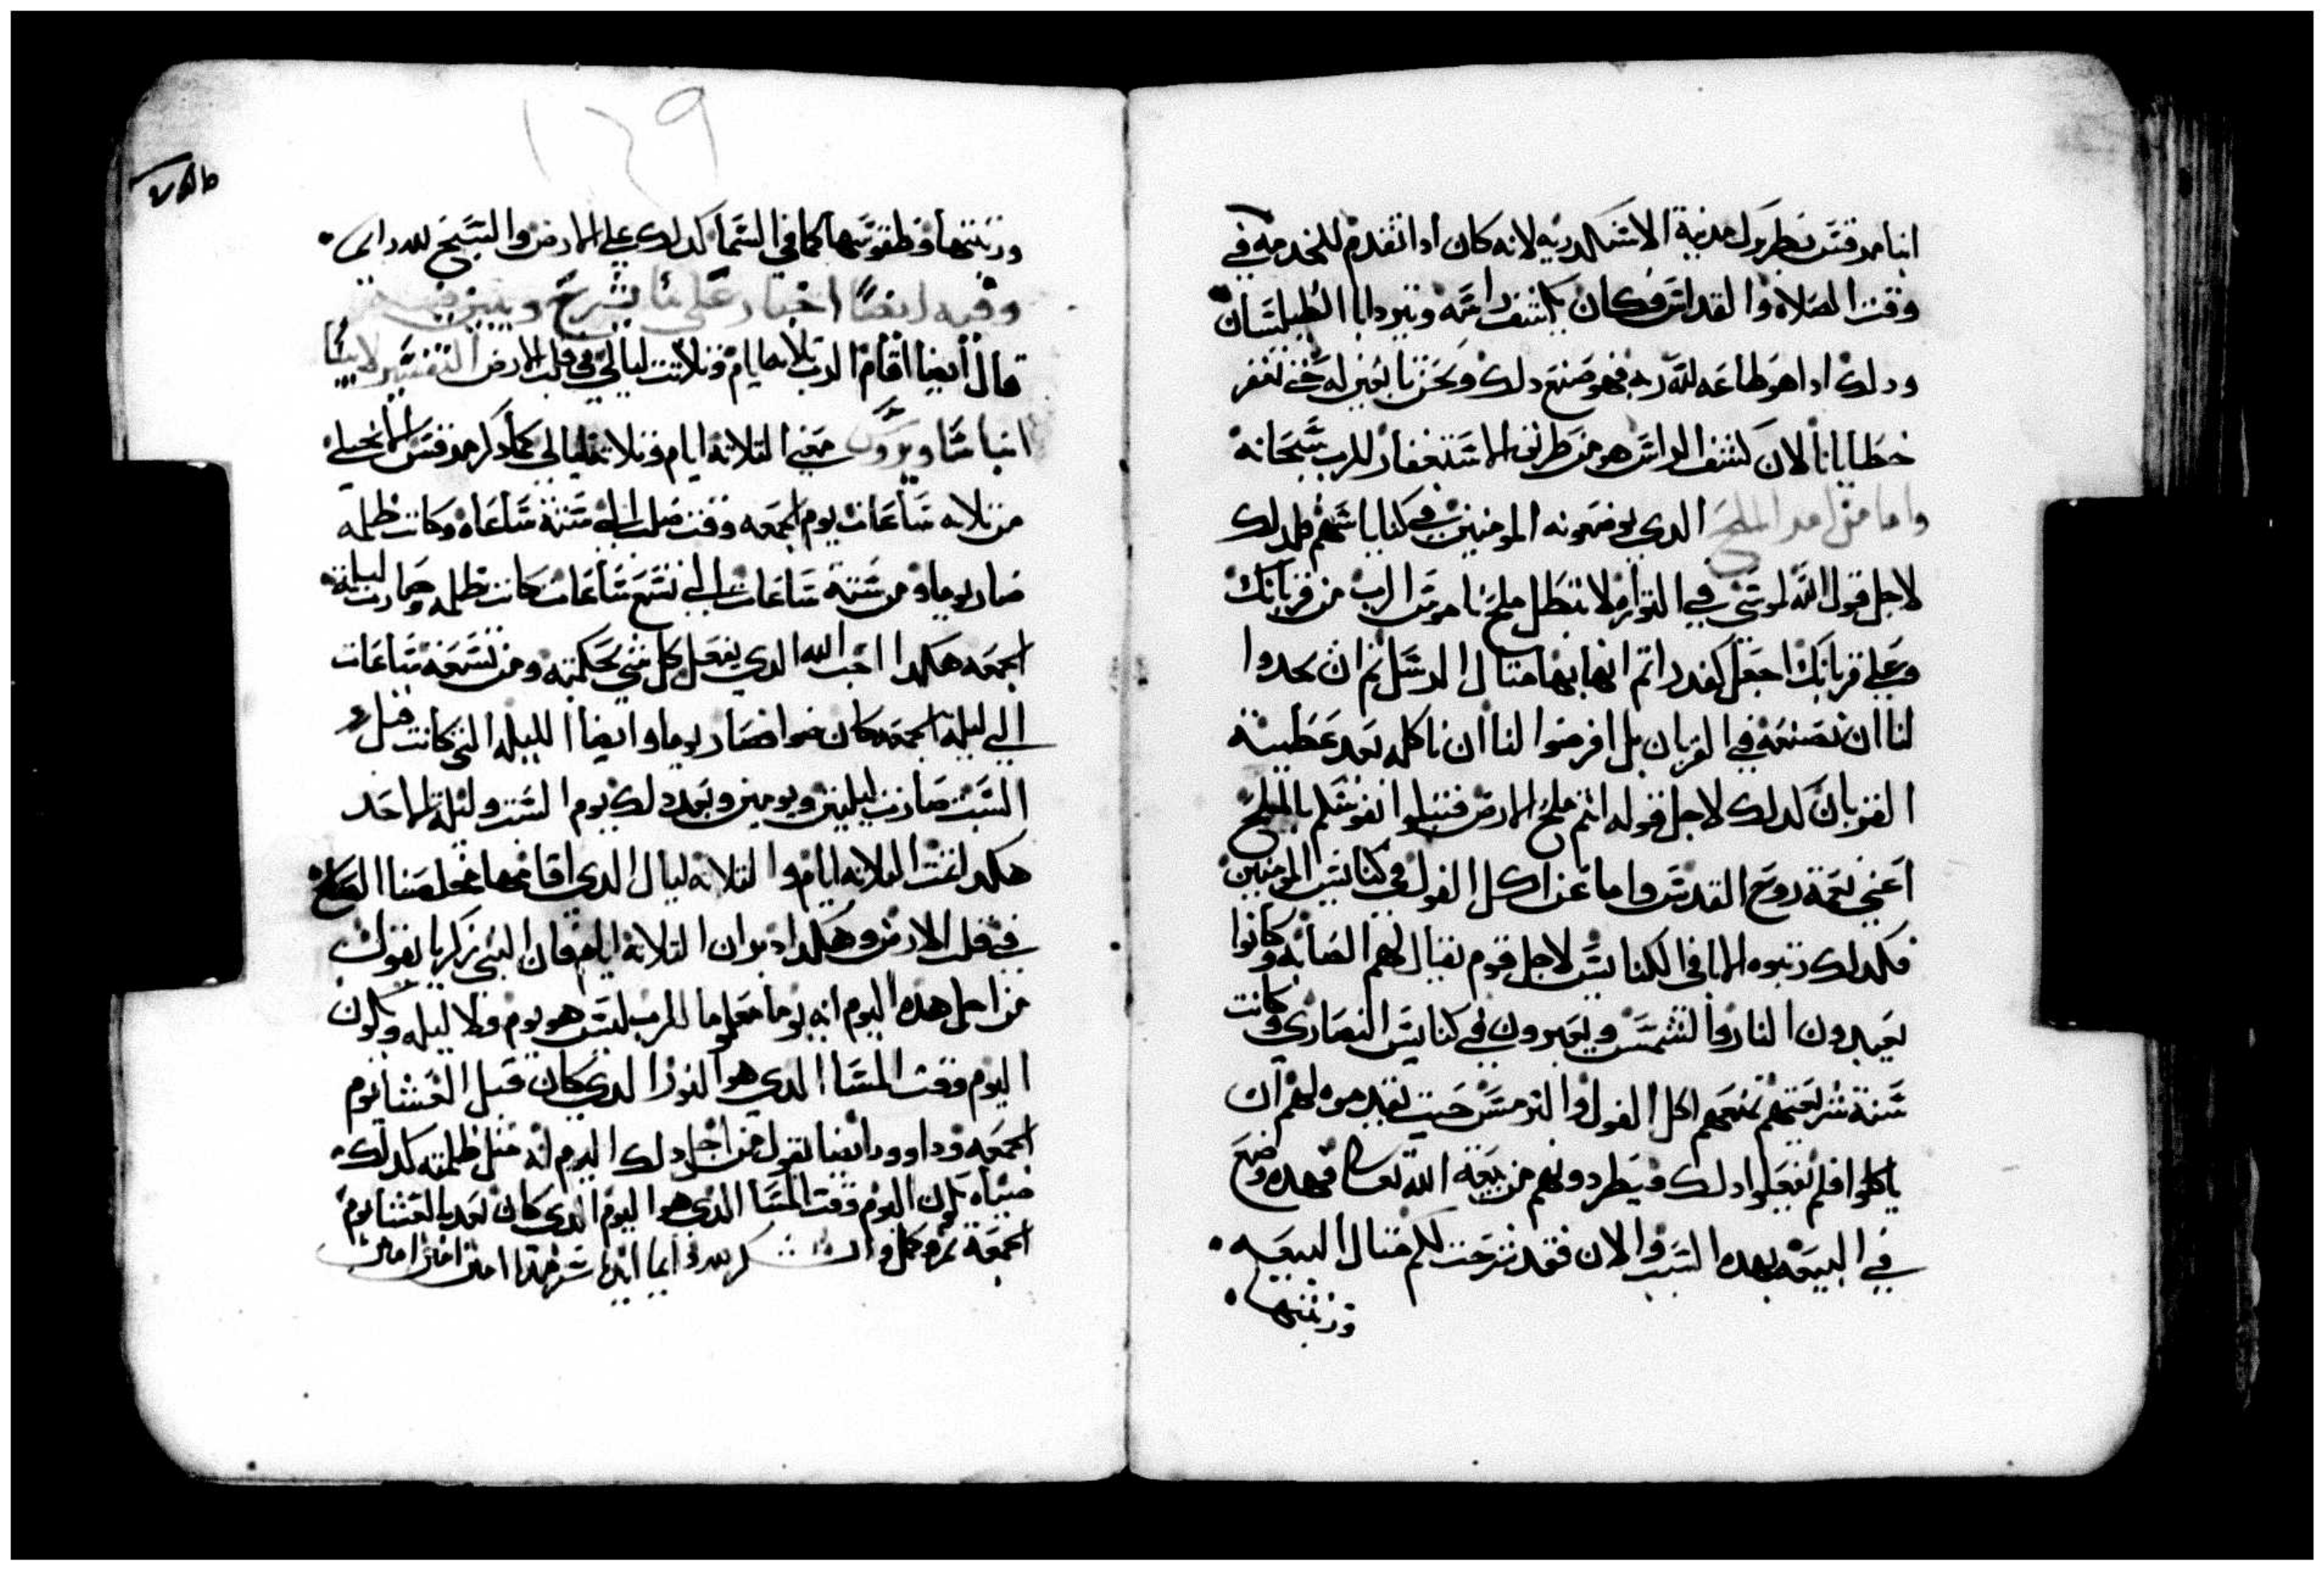 انبا مرقس بطريرك مدينة الاسكندريه لانه كان ادا تقدم للخدمه في
وقت الصلاه والقداس فكان يكشف راسه ويرد ابا الطيلسان
ودلك اداهو طاعه لله ربه فهو صنع دلك ونحن نابعين له حتى تغفر
خطايانا لان كشف الراس هو من طريق الاستغفار للرب سبحانه
واما من اجل الملح الدي يوضعونه المومنين في كنايسهم فلدلك
لاجل قول الله لموسى في التوراه لا تبطل ملح ناموس الرب من قربانك
وعلى قربانك اجعل انها مثال الرسل ثم ان
لنا ان نصنعه في القربان بل افرضوا لنا ان ناكله بعد عطيية
القربان لدلك لاجل قوله انتم ملح الارض فتبلوا نفوسكم بالملح
اعني نعمة روح القدس واما عن اكل الفول في كنايس المومنين
فكدلك رتبوه الابا في الكنايس لاجل قوم يقال لهم الصابه وكانوا
يعبدون النار والشمس ويعبرون في كنايس النصارى وكانت
سنة شريعتهم تمنعهم اكل الفول والترمس حيت يقدموه لهم ان
ياكلوا فلم يفعلوا دلك ويطردونهم من بيعة الله تعالى فهده وضع
في البيعه بهدا السبب والان فقد شرحت لكم مثال البيعه
وزينتها
١٢٩
وزينتها وطقوسها كما في السما كدلك على الارض والسبح لله دايما
وفيه ايضا اخبار على ما يشرح ويبين
قال ايضا اقام الرب تلاته ايام وتلاتت ليالي في قلب الارض التفسير لابينا
انبا ساويرس معني التلاتة ايام وتلاتة ليالي كما دكر مرقس الانجيلي
من تلاته ساعات يوم الجمعه وقت صلب الي ستة ساعاة وكانت ظلمه
صار يوما ومن ستة ساعات الي تسع ساعات كانت ظلمه وصارت ليلة
الجمعه هكدا احب الله الدي يفعل كل شي بحكمته ومن تسعة ساعات
الي ليلة الجمعه كان ضوا فصار يوما وايضا الليله التي كانت قبل
السبت صارت ليلتين ويومين وبعد دلك يوم السبت وليلة الاحد
هكدا تمت التلاته ايام والتلاته ليال الدي اقامها مخلصنا الصالح
في قلب الارض وهكدا التلاتة ايام فان النبي زكريا يقول
من اجل هده اليوم انه يوما معلوما للرب ليس هو يوم ولا ليله ويكون
اليوم وقت المسا الدي هو النور الدي كان قبل العشا يوم
الجمعه وداوود ايضا يقول من اجل دلك اليوم انه متل ظلمته كدلك
ضياه يكون اليوم وقت المسا الدي هو اليوم الدي كان بعد العشا يوم
الجمعة كمل دايما ابديا سرمدا امين امين امين